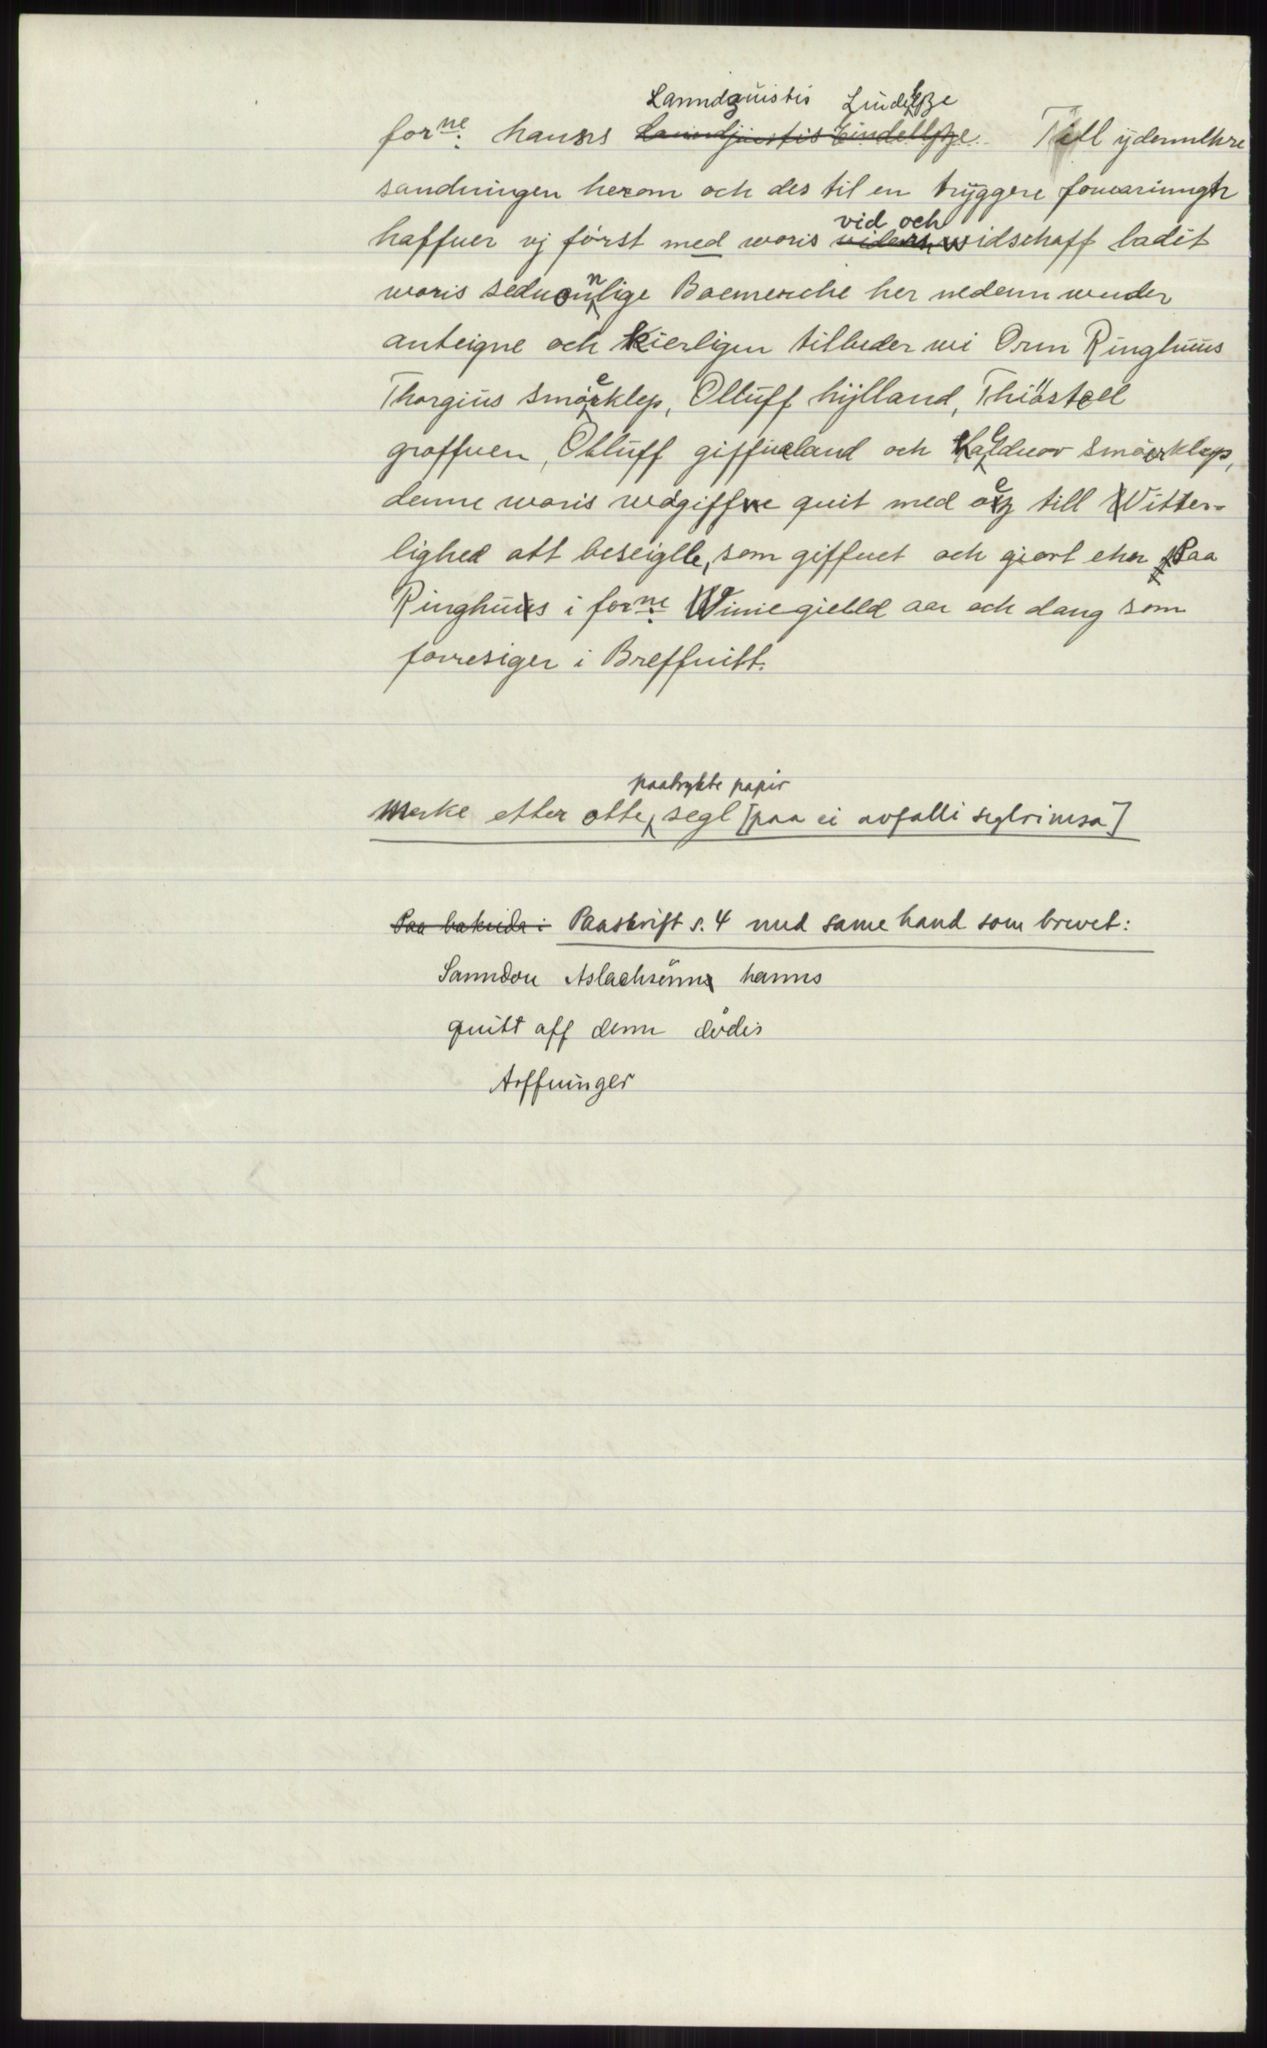 Lanndzuistis Lindelße
for<sup>ne</sup>. hanns Till ydermehre
sandningen herom och des til en tryggere forwaringh
vid och
haffuer vj först med woris widschaff ladit
woris seduonnlige Boemerche her nedenn wnder
anteigne och kierligen tilbeder wi Orm Ringhuus
Thorgius Smöerklep, Olluff hÿlland, Thiöstell
groffuen, Olluff giffueland och Smöerklep,
denne woris wdgiffne quit med oß till Witter-
lighed att beseigle, som giffuet och giort ehr Paa
Ringhus i for<sup>ne</sup>. Winiegielld aar och dang som
forresiger i Breffuitt.
paatrykte papir
Merke etter otte segl [paa ei avfalli seglrimsa]
Paa baksida: Paaskrift s. 4 med same hand som brevet:
Sanndou Aslachsönn hanns
quitt aff denn dödis
Arffuinger